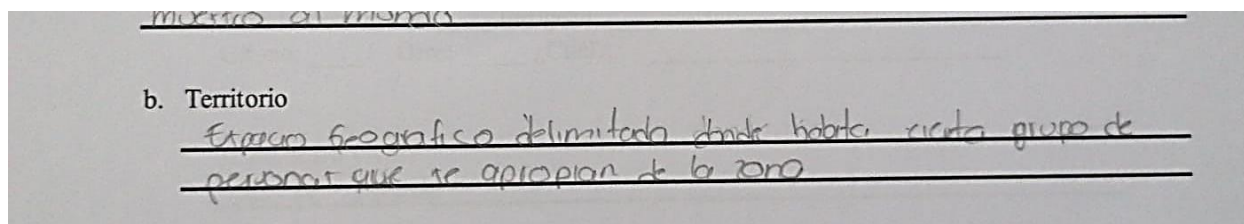 muestro al mundo
b. Territorio
Espacio Geografico delimitado donde habita cierto grupo de
personas que se apropian de la zona